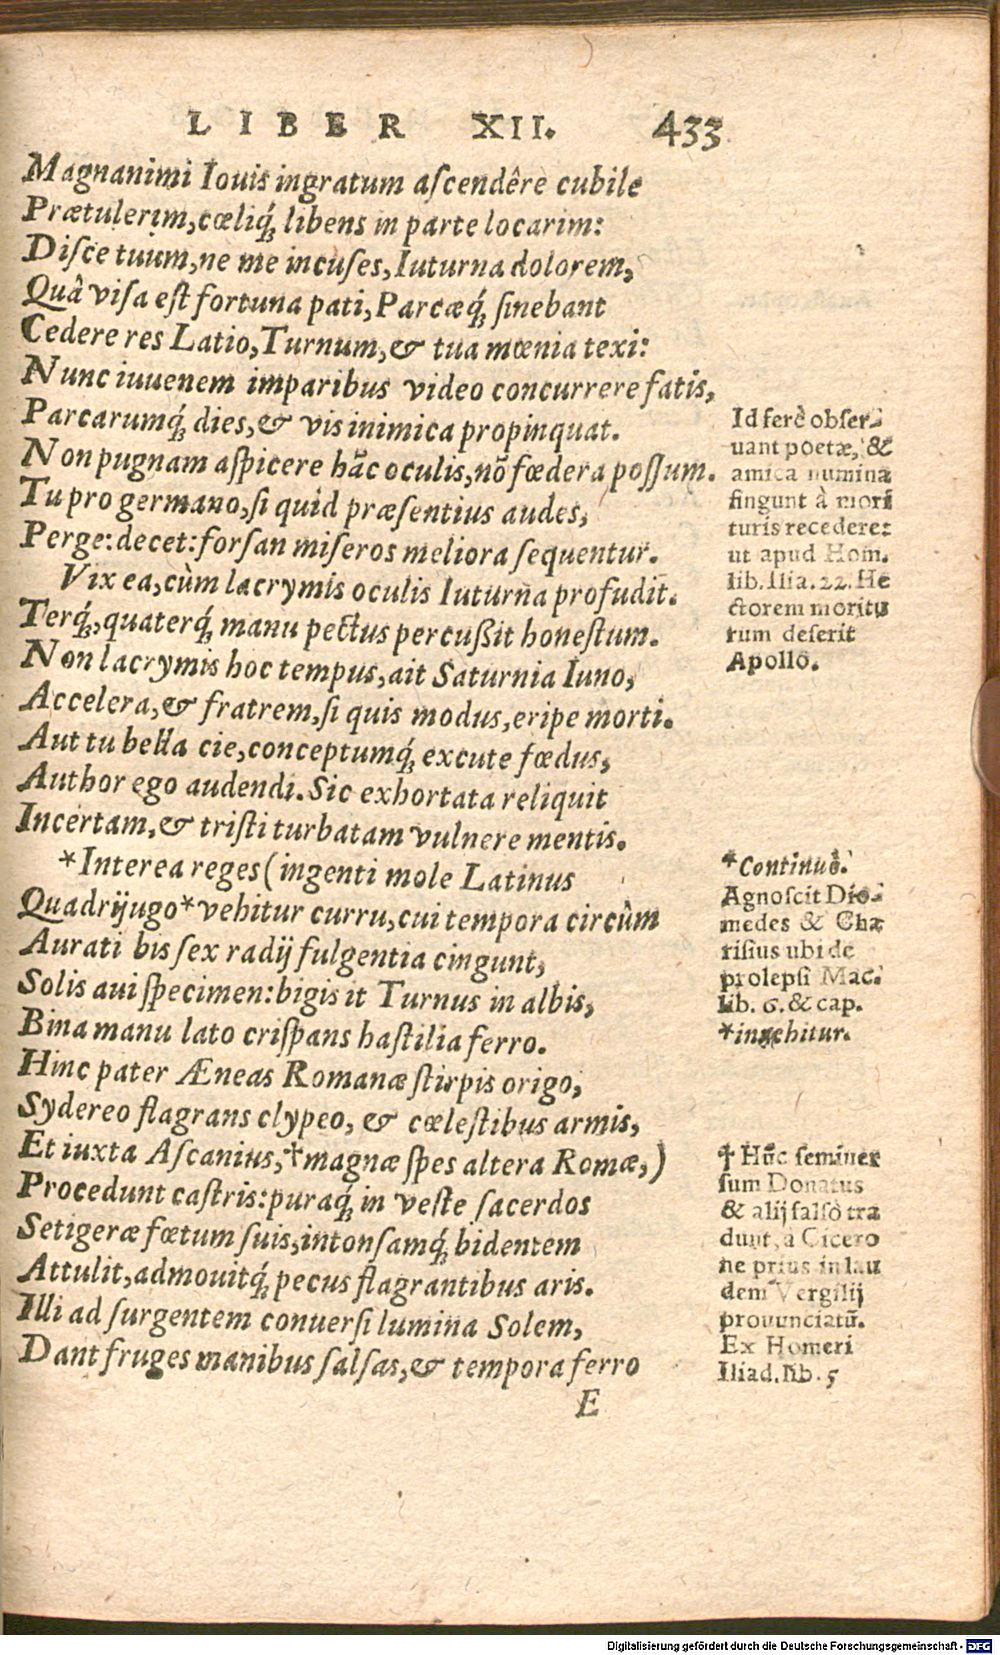 LIBER XII. 433
Magnanimi Iouis ingratum aſcendêre cubile
Prætulerim, cœliq́; libens in parte locarim:
Diſce tuum, ne me incuſes, Iuturna dolorem,
Quâ viſa eſt fortuna pati, Parcæq́; ſinebant
Cedere res Latio, Turnum, & tua mœnia texi:
Nunc iuuenem imparibus video concurrere fatis,
Parcarumq́; dies, & vis inimica propinquat.
Non pugnam aſpicere hãc oculis, nõ fœdera poſſum.
Tu pro germano, ſi quid præſentius audes,
Perge: decet: forſan miſeros meliora ſequentur.
Vix ea, cùm lacrymis oculis Iuturna profudit.
Terq́;, quaterq́; manu pectus percußit honeſtum.
Non lacrymis hoc tempus, ait Saturnia Iuno,
Accelera, & fratrem, ſi quis modus, eripe morti.
Aut tu bella cie, conceptumq́; excute fœdus,
Author ego audendi. Sic exhortata reliquit
Incertam, & triſti turbatam vulnere mentis.
*Interea reges (ingenti mole Latinus
Quadrijugo * vehitur curru, cui tempora circùm
Aurati bis ſex radij fulgentia cingunt,
Solis aui ſpecimen: bigis it Turnus in albis,
Bina manu lato criſpans haſtilia ferro.
Hinc pater Æneas Romanæ ſtirpis origo,
Sydereo flagrans clypeo, & cœleſtibus armis,
Et iuxta Aſcanius, †magnæ ſpes altera Romæ,)
Procedunt caſtris: puraq́; in veſte ſacerdos
Setigeræ fœtum ſuis, intonſamq́; bidentem
Attulit, admouitq́; pecus flagrantibus aris.
Illi ad ſurgentem conuerſi lumina Solem,
Dant fruges manibus ſalſas, & tempora ferro
E
Id ferè obſer-
uant poetæ, &
amica numina
fingunt à mori
turis recedere:
ut apud Hom.
lib. Ilia. 22. He
ctorem moritu
rum deſerit
Apollo.
*Continuò.
Agnoſcit Dio-
medes & Cha
riſius ubi de
prolepſi Mac.
lib. 6. & cap.
*inuehitur.
† Hũc ſemiuer
ſum Donatus
& alij falſò tra
dunt, à Cicero
ne prius in lau
dem Vergilij
pronunciatũ.
Ex Homeri
Iliad. lib. 5
Digitalisierung gefördert durch die Deutsche Forschungsgemeinschaft - DFG